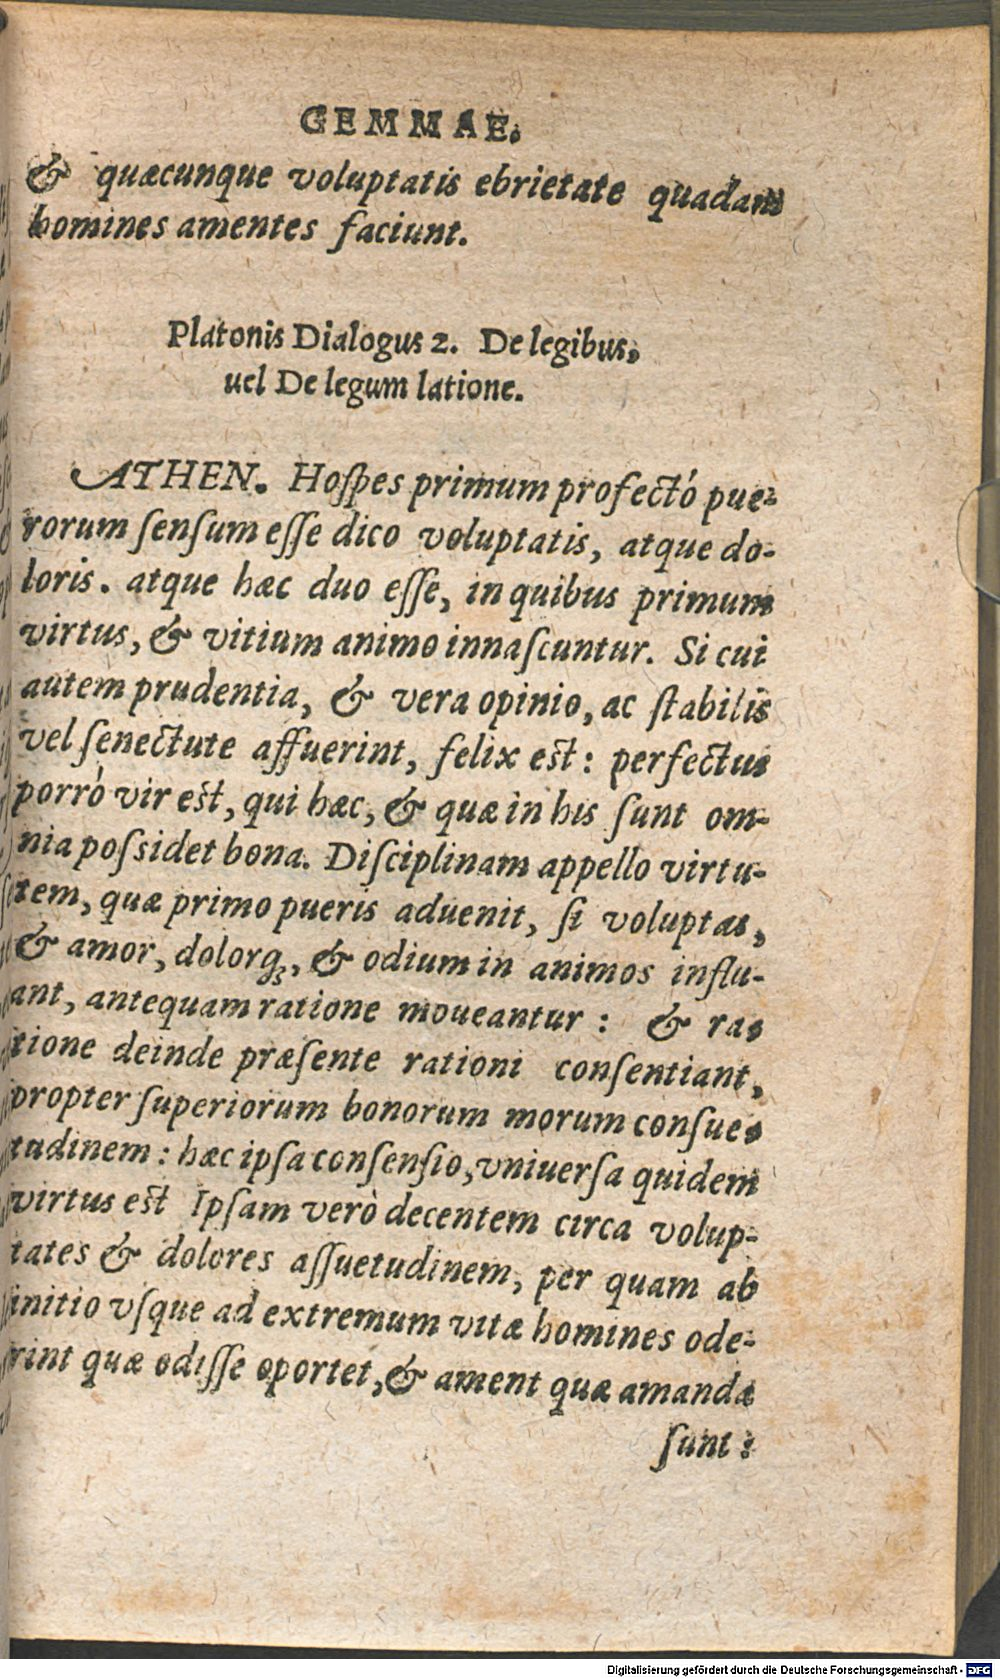 GEMMAE.
& quæcunque voluptatis ebrietate quadam
homines amentes faciunt.
Platonis Dialogus 2. De legibus,
uel De legum latione.
ATHEN. Hoſpes primum profectó pue-
rorum ſenſum eſſe dico voluptatis, atque do-
loris. atque hæc duo eſſe, in quibus primum
virtus, & vitium animo innaſcuntur. Si cui
autem prudentia, & vera opinio, ac ſtabilis
vel ſenectute affuerint, felix est: perfectus
porró vir est, qui hæc, & quæ in his ſunt om-
nia poſsidet bona. Diſciplinam appello virtu-
tem, quæ primo pueris aduenit, ſi voluptas,
& amor, dolorq́;, & odium in animos influ-
ant, antequam ratione moueantur: & ra-
tione deinde præſente rationi conſentiant,
propter ſuperiorum bonorum morum conſue-
tudinem: hæc ipſa conſenſio, vniuerſa quidem
virtus est Ipſam verò decentem circa volup-
tates & dolores aſſuetudinem, per quam ab
initio vſque ad extremum vitæ homines ode-
rint quæ odiſſe oportet, & ament quæ amanda
ſunt:
Digitalisierung gefördert durch die Deutsche Forschungsgemeinschaft - DFG